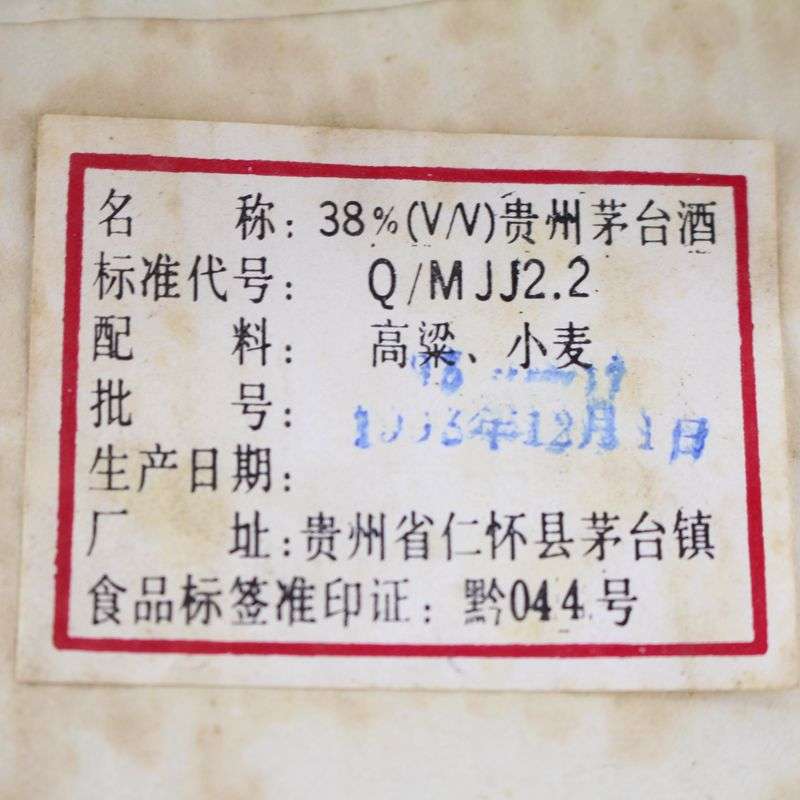 名 称: 38%(V/V)贵州茅台酒
标准代号: Q/MJJ2.2
配 料: 高粱、小麦
批 号:
1993年12月1日
生产日期:
厂 址:贵州省仁怀县茅台镇
食品标签准印证: 黔044号